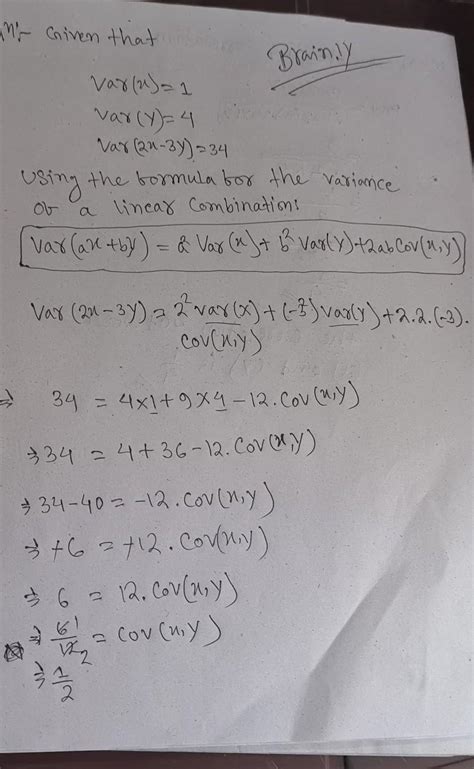 n:- Given that
Brainly
Var(x)=1
Var(y)=4
Var(2x-3y)=34
Using the formula for the variance
of a linear Combination:
Var(ax+by) = a² Var(x)+ b² Var(y)+2ab Cov(x,y)
Var(2x-3y)=2² var(x)+(-3²)var(y)+2.2.(-3).
Cov(x,y)
⇒ 34 = 4×1+9×4-12.Cov(x,y)
⇒34 = 4+36-12.Cov(x,y)
⇒34-40=-12.Cov(x,y)
⇒+6=+12.Cov(x,y)
⇒ 6 = 12.Cov(x,y)
⇒ 6 1/12 2 = Cov(x,y)
⇒ 1/2